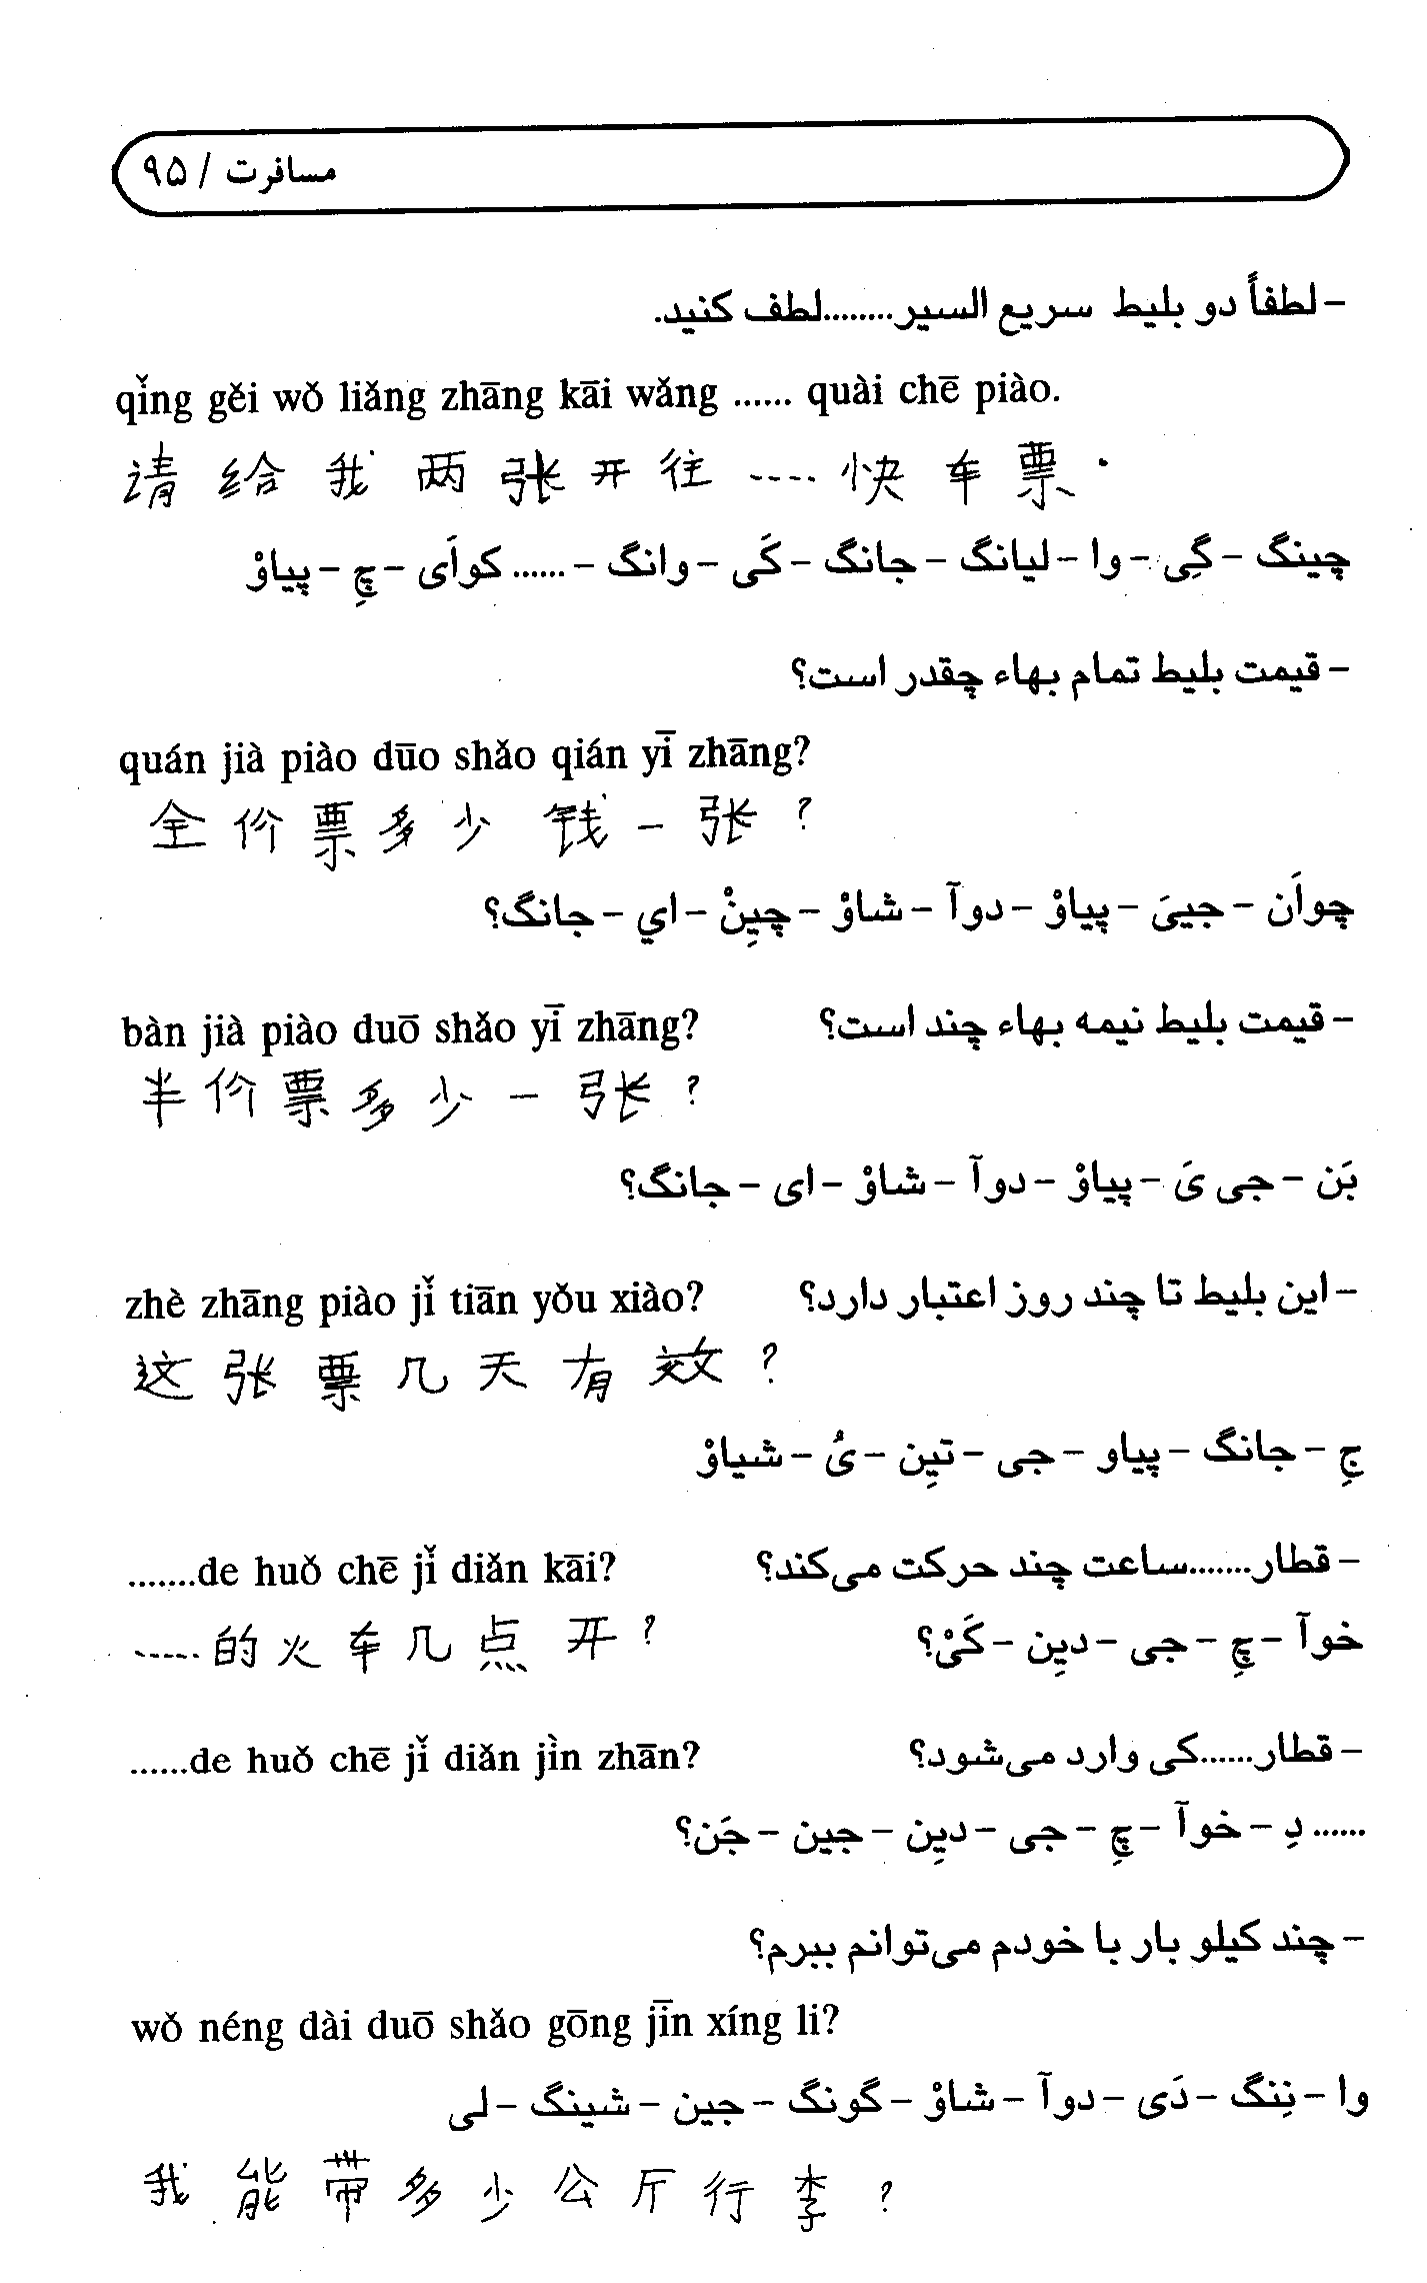 مسافرت / ۹۵
– لطفاً دو بلیط سریع السیر........لطف کنید.
qǐng gěi wǒ liǎng zhāng kāi wǎng ...... quài chē piào.
请 给 我 两 张 开 往 ..... 快 车 票 .
چینگ – گِی – وا – لیانگ – جانگ – کَی – وانگ – ...... کواَی – چِ – پیاوْ
– قیمت بلیط تمام بهاء چقدر است؟
quán jià piào dūo shǎo qián yī zhāng?
全 价 票 多 少 钱 一 张 ?
چواَن – جییَ – پیاوْ – دوآ – شاوْ – چیِنْ – اي – جانگ؟
– قیمت بلیط نیمه بهاء چند است؟ bàn jià piào duō shǎo yī zhāng?
半 价 票 多 少 一 张 ?
بَن – جی یَ – پیاوْ – دوآ – شاوْ – ای – جانگ؟
– این بلیط تا چند روز اعتبار دارد؟ zhè zhāng piào jǐ tiān yǒu xiào?
这 张 票 几 天 有 效 ?
جِ – جانگ – پیاو – جی – تیِن – یُ – شیاوْ
– قطار.......ساعت چند حرکت می‌کند؟ .......de huǒ chē jǐ diǎn kāi?
خوآ – چِ – جی – دیِن – کَیْ؟ ......的 火 车 几 点 开 ?
– قطار......کی وارد می‌شود؟ ......de huǒ chē jǐ diǎn jìn zhān?
...... دِ – خوآ – چِ – جی – دیِن – جین – جَن؟
– چند کیلو بار با خودم می‌توانم ببرم؟
wǒ néng dài duō shǎo gōng jīn xíng li?
وا – نِنگ – دَی – دوآ – شاوْ – گونگ – جین – شینگ – لی
我 能 带 多 少 公 斤 行 李 ?